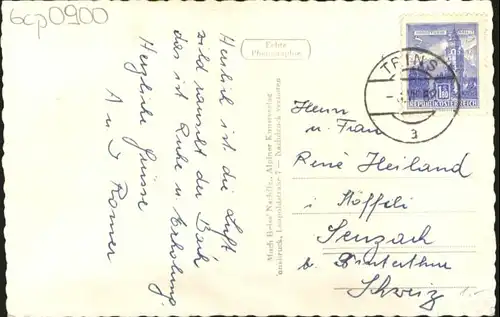 6cp0900
Herrlich ist die Luft
wild rauscht der Bach
das ist Ruhe u Erholung.
Herzliche Grüsse
A u J Romer
Echte
Photographie
Much Heiss' Nachflg., Alpiner Kunstverlag
Innsbruck, Leopoldstrasse 7 — Nachdruck verboten
TRINS
a
REPUBLIK ÖSTERREICH
1.80
Herrn
u. Frau
René Heiland
i Stöffeli
Seuzach
b. Winterthur
Schweiz